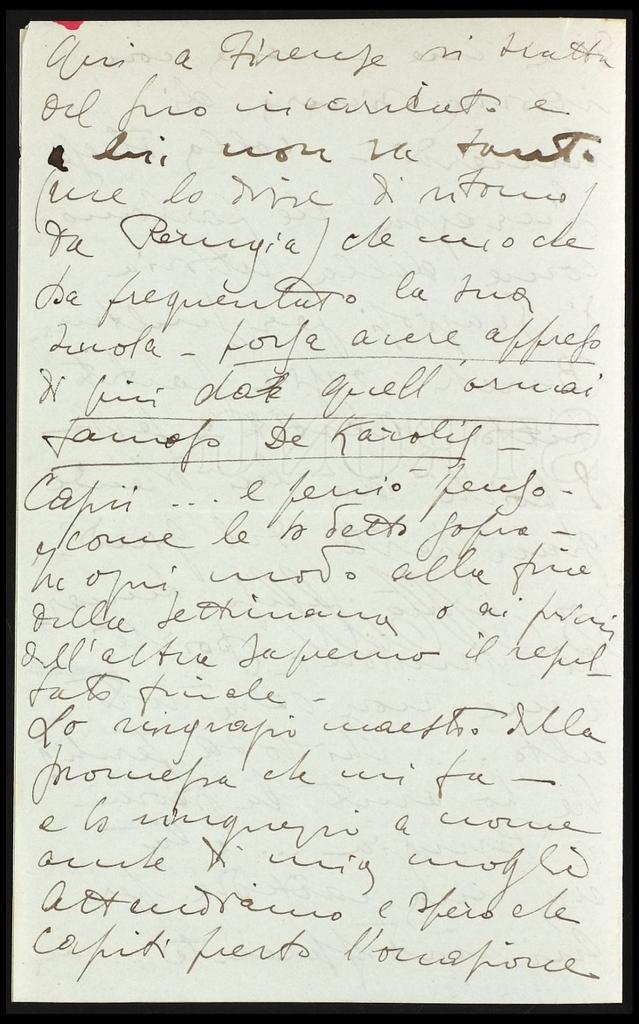 Qui a Firenze si tratta
del suo incaricato e
a lui non va tanto
(me lo disse di ritorno
da Perugia) che uno che
ha frequentato la sua
scuola - possa avere appreso
di più dal quell'ormai
famoso De Karolis -
Capii ... e perciò penso -
come le ho detto sopra -
In ogni modo alla fine
della settimana o ai primi
dell'altra sapremo il resul-
tato finale -
Lo ringrazio maestro della
promessa che mi fa -
e lo ringrazio a nome
anche di mia moglie
Attendiamo e spero che
capiti presto l'occasione